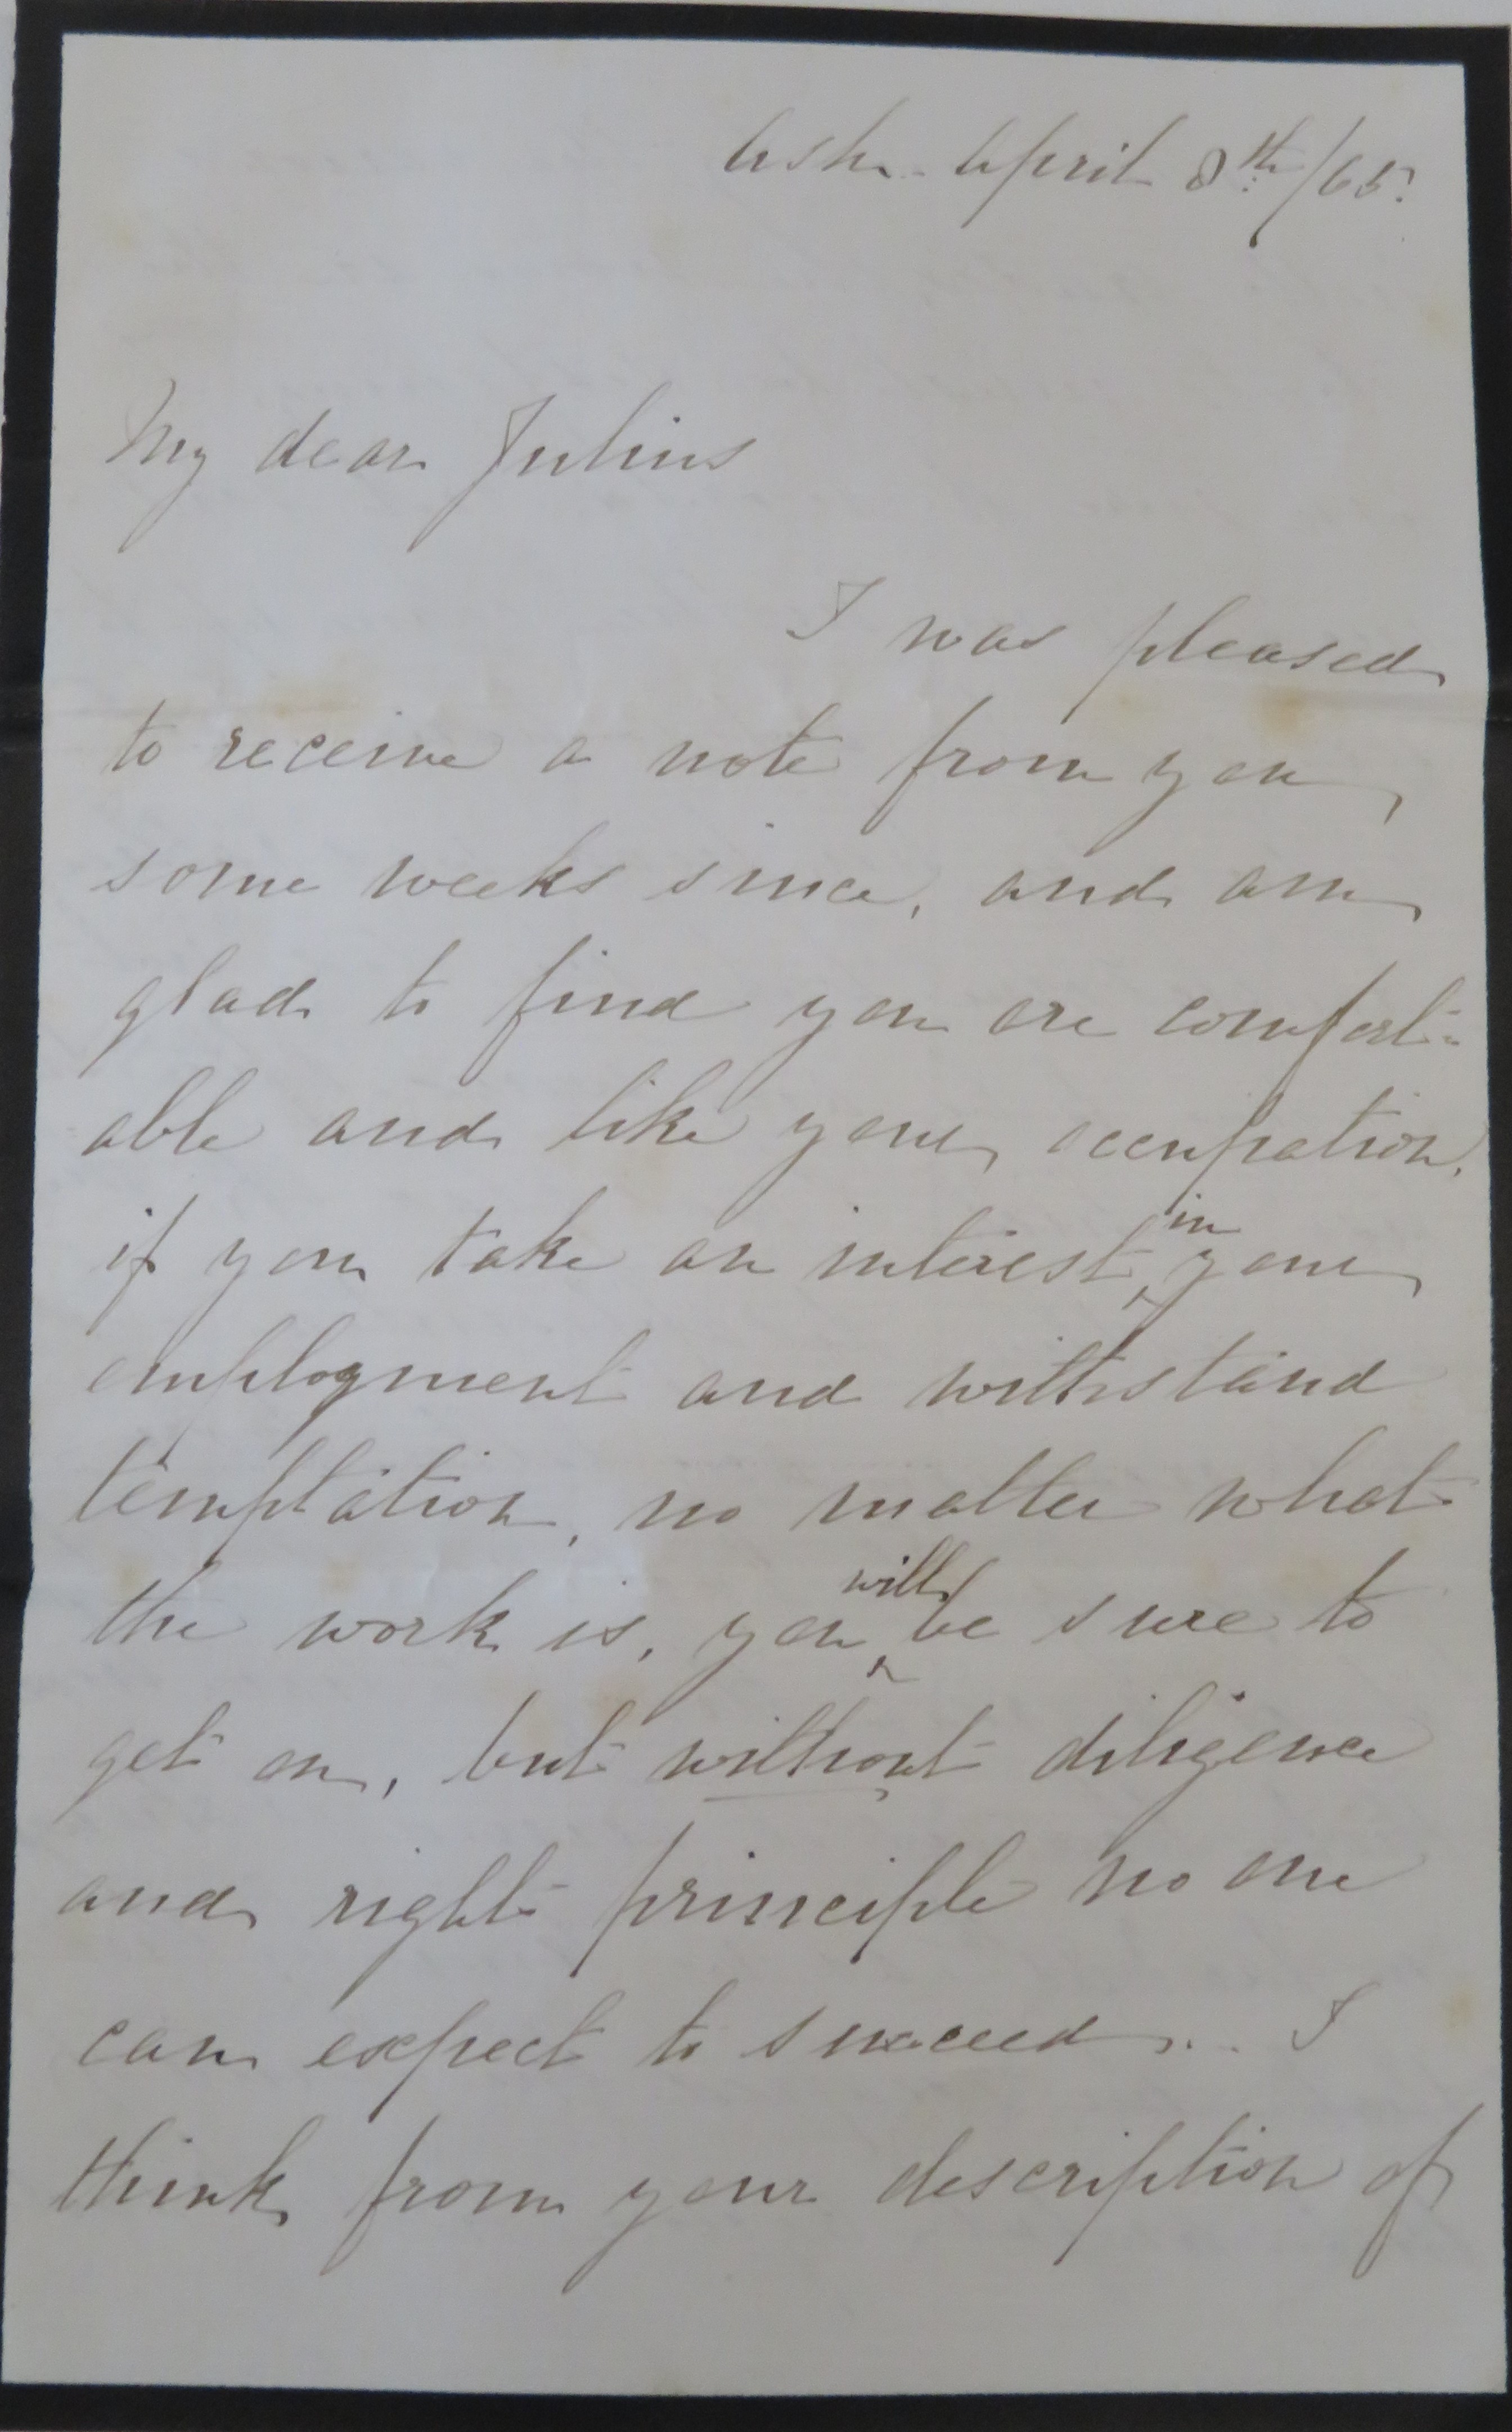 Ash. April 8th/65.
My dear Julius
I was pleased
to receive a note from you,
some weeks since, and am
glad to find you are comfort-
able and like your occupation,
if you take an interest in your
employment and withstand
temptation, no matter what
the work is, you will be sure to
get on, but without diligence
and right principle no one
can expect to succeed.. I
think from your description of